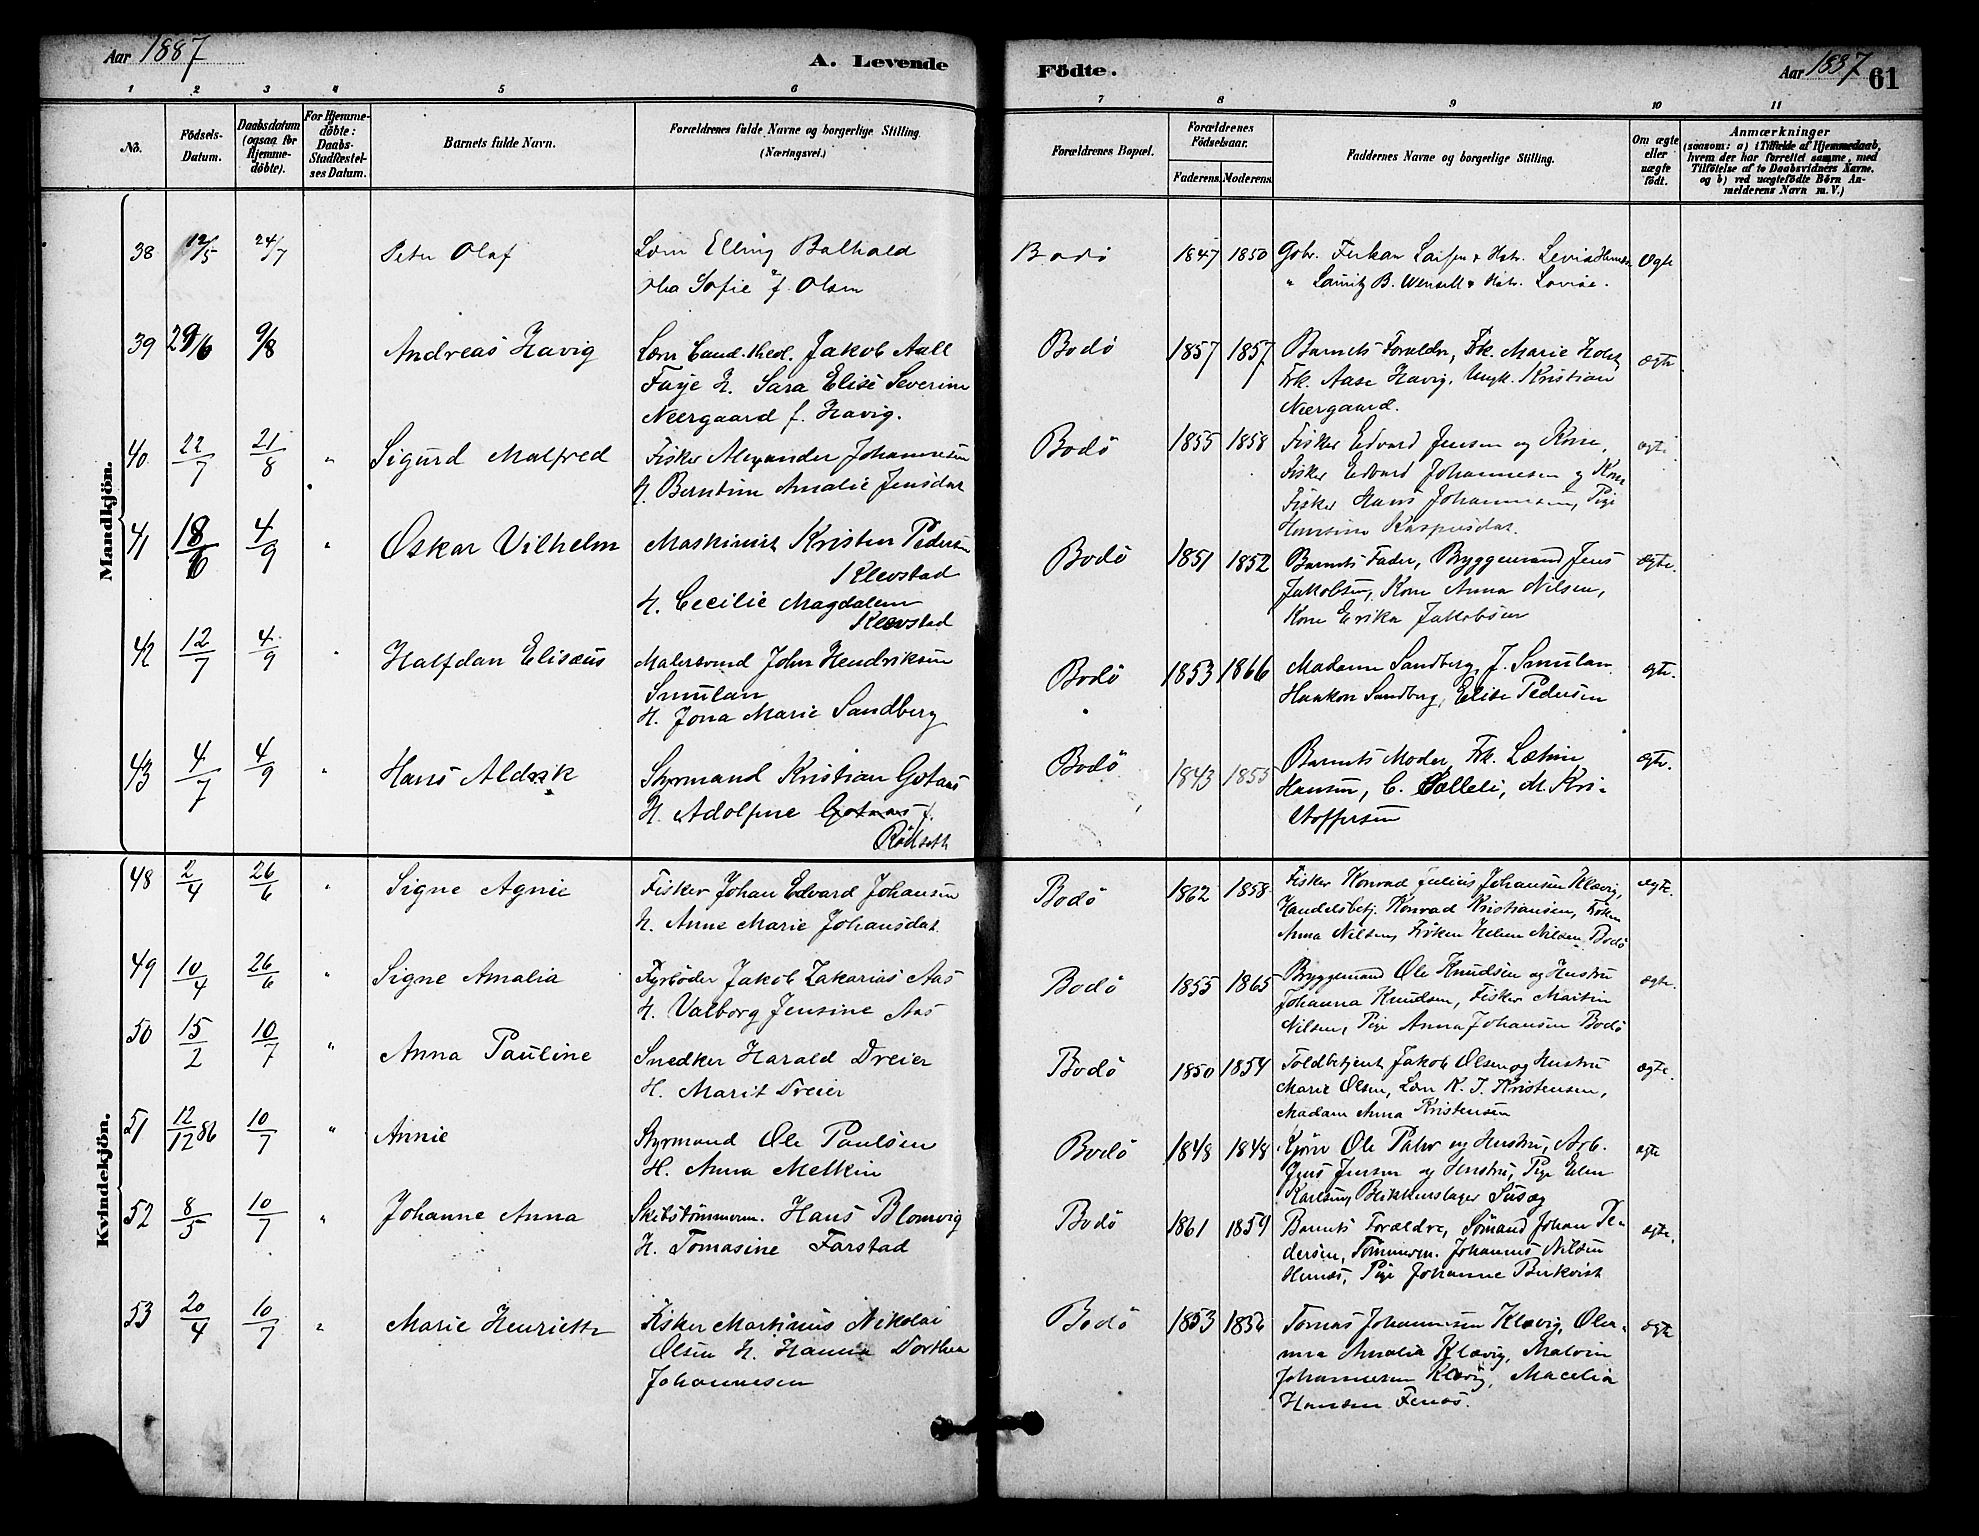 Aar 1887
A. Levende
Födte.
Aar 1887
61
1 2 3 4 5 6 7 8 9 10 11
No.
Födsels-
Datum.
Daabsdatum
(ogsaa for
Hjemme-
döbte).
For Hjemme-
döbte:
Daabs-
Stadfæstel-
ses Datum.
Barnets fulde Navn.
Forældrenes fulde Navne og borgerlige Stilling.
(Næringsvei.)
Forældrenes Bopæl.
Forældrenes
Födselsaar.
Faderens. Moderens.
Faddernes Navne og borgerlige Stilling.
Om ægte
eller
uægte
födt.
Anmærkninger
(saasom: a) i Tilfælde af Hjemmedaab,
hvem der har forrettet samme, med
Tilföielse af to Daabsvidners Navne,
og b) ved uægtefödte Börn An-
melderens Navn m. V.)
Mandkjön.
38 12/5 24/7 Peter Olaf
Elling Balhald
Sofie f. Olsen
Bodö 1847 1850
Lovise.
Ægte
39 29/6 9/8 Andreas Havig
Cand. theol. Jakob Aall
Faye H. Sara Elise Severine
Neergaard f. Havig.
Bodö 1857 1857
Barnets Forældre, Frk. Marie Holst
Frk. Aase Havig, Ungk. Kristian
Neergaard.
ægte
40 22/7 21/8 " Sigurd Malfred
Fisker Alexander Johannesen
H. Berntine Amalie Jensdat
Bodö 1855 1858
Fisker Edvard Jensen og Kone,
Fisker Edvard Johannesen og Kone
Fisker Hans Johannesen, Pige
Hansine Kaspersdat.
ægte
41 18/6 4/9 " Oskar Vilhelm
Maskinist Kristen Pedersen
Klevstad
H. Cecilie Magdalena
Klevstad
Bodö 1851 1852
Barnets Fader, Bryggemand Jens
Jakobsen, Kone Anna Nilsen,
Kone Erika Jakobsen
ægte.
42 12/7 4/9 " Halfdan Elisæus
Malersvend John Hendriksen
Smulan
H. Jona Marie Sandberg
Bodö 1853 1866
Madame Sandberg, J. Smulan
Haakon Sandberg, Elise Pedersen
ægte.
43 4/7 4/9 " Hans Aldrik
Styrmand Kristian Gotaas
H. Adolfine Gotaas f.
Rödseth
Bodö 1843 1855
Barnets Moder, Frk.
Hansen, C. M. Kri-
stoffersen
ægte.
Kvindekjön.
48 2/4 26/6 " Signe Agnie
Fisker Johan Edvard Johansen
H. Anne Marie Johansdat.
Bodö 1862 1858
Fisker Konrad Julius Johansen Klævig,
Handelsbetj. Konrad Kristiansen, Fröken
Anna Nilsen, Fröken Helene Nilsen Bodö
ægte.
49 10/4 26/6 " Signe Amalia
Fyrböder Jakob Zakarias Aas
H. Valborg Jensine Aas
Bodö 1855 1865
Bryggemand Ole Knudsen og Hustru
Johanna Knudsen, Fisker Martin
Nilsen, Pige Anna Johansen Bodö
ægte.
50 15/2 10/7 " Anna Pauline
Snedker Harald Dreier
H. Marit Dreier
Bodö 1850 1854
Toldbetjent Jakob Olsen og Hustru
Marie Olsen, K. J. Kristensen,
Madam Anna Kristensen
ægte.
51 12/12 86 10/7 " Annie
Styrmand Ole Paulsen
H. Anna Melkin
Bodö 1848 1848
Ole og Hustru, Arb.
Jensen og Hustru, Pige
Karlsen, Blikkenslager
ægte
52 8/5 10/7 " Johanne Anna
Skibstömmerm. Hans Blomvig
H. Tomasine Farstad
Bodö 1861 1854
Barnets Forældre, Sömand Johan Pe-
dersen, Tömmerm. Johannes Nilsen
Pige Johanne
ægte.
53 20/4 10/7 " Marie Henriette
Fisker Martinus Nikolai
Olsen H. Hanna Dorthea
Johannesen
Bodö 1853 1856
Tomas Johannesen Klævig,
Amalia Klævig, Malvin
Johannesen Klævig,
Hansen
ægte